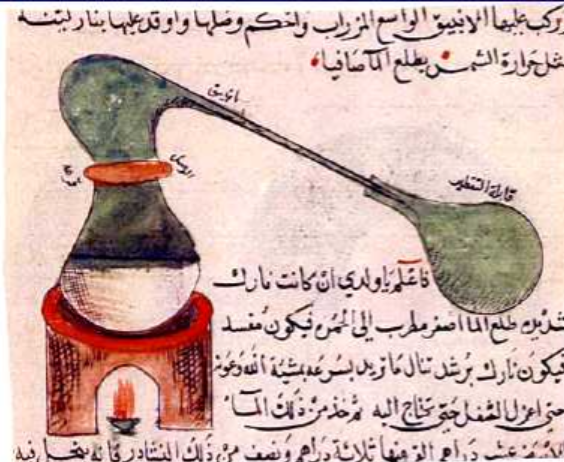 وركب عليها الانبيق الواسع المزراب واحكم وصلها واوقد عليها بنار لينه
مثل حرارة الشمس يطلع الماء صافيا
انبيق
قابلة التقطير
فاعلم يا ولدي ان كانت نارك
شديده طلع الما اصفر مطرب الى الحمره فيكون مفسد
فيكون نارك برشد تنال ما تريد بسرعه بمشيئة الله وعونه
حتى اعزل الثفل حتى تحتاج اليه ثم خذ من ذلك الماء
عشر دراهم الق منها ثلاثة دراهم ونصف من ذلك النشادر فانه ينحل فيه